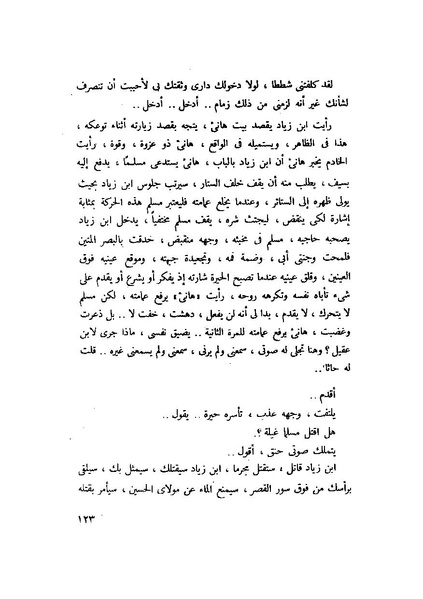 لقد كلفتنى شططا ، لولا دخولك دارى وثقتك بى لأحببت أن تنصرف
لشأنك غير أنه لزمنى من ذلك زمام .. أدخل .. أدخل ..
رأيت ابن زياد يقصد بيت هانئ ، يتجه بقصد زيارته أثناء توعكه ،
هذا فى الظاهر ، ويستميله فى الواقع ، هانئ ذو عزوة ، وقوة ، رأيت
الخادم يخبر هانئ أن ابن زياد بالباب ، هانئ يستدعى مسلمًا ، يدفع إليه
بسيف ، يطلب منه أن يقف خلف الستار ، سيرتب جلوس ابن زياد بحيث
يولى ظهره إلى الستائر ، وعندما يخلع عمامته فليعتبر مسلم هذه الحركة بمثابة
إشارة لكى ينقض ، ليجتث شره ، يقف مسلم مختفياً ، يدخل ابن زياد
يصحبه حاجبيه ، مسلم فى مخبئه ، وجهه منقبض ، حدقت بالبصر المتين
فلمحت وجنتى أبى ، وضمة فمه ، وتجعيدة جبهته ، وموقع عينيه فوق
العينين ، وقلق عينيه عندما تصبح الحيرة شارته إذ يفكر أو يشرع أو يقدم على
شىء تأباه نفسه وتكرهه روحه ، رأيت «هانئ» يرفع عمامته ، لكن مسلم
لا يتحرك ، لا يقدم ، بدا لى أنه لن يفعل ، دهشت ، خفت لا .. بل ذعرت
وغضبت ، هانئ يرفع عمامته للمرة الثانية .. يضيق نفسى ، ماذا جرى لابن
عقيل ؟ وهنا تجلى له صوتى ، سمعنى ولم يرنى ، سمعنى ولم يسمعنى غيره .. قلت
له حاثا..
أقدم ..
يلتفت ، وجهه عذب ، تأسره حيرة .. يقول ..
هل اقتل مسلما غيلة ؟.
يتملك صوتى حنق ، أقول ..
ابن زياد قاتل ، ستقتل مجرما ، ابن زياد سيقتلك ، سيمثل بك ، سيلقى
برأسك من فوق سور القصر ، سيمنع الماء عن مولاى الحسين ، سيأمر بقتله
١٢٣